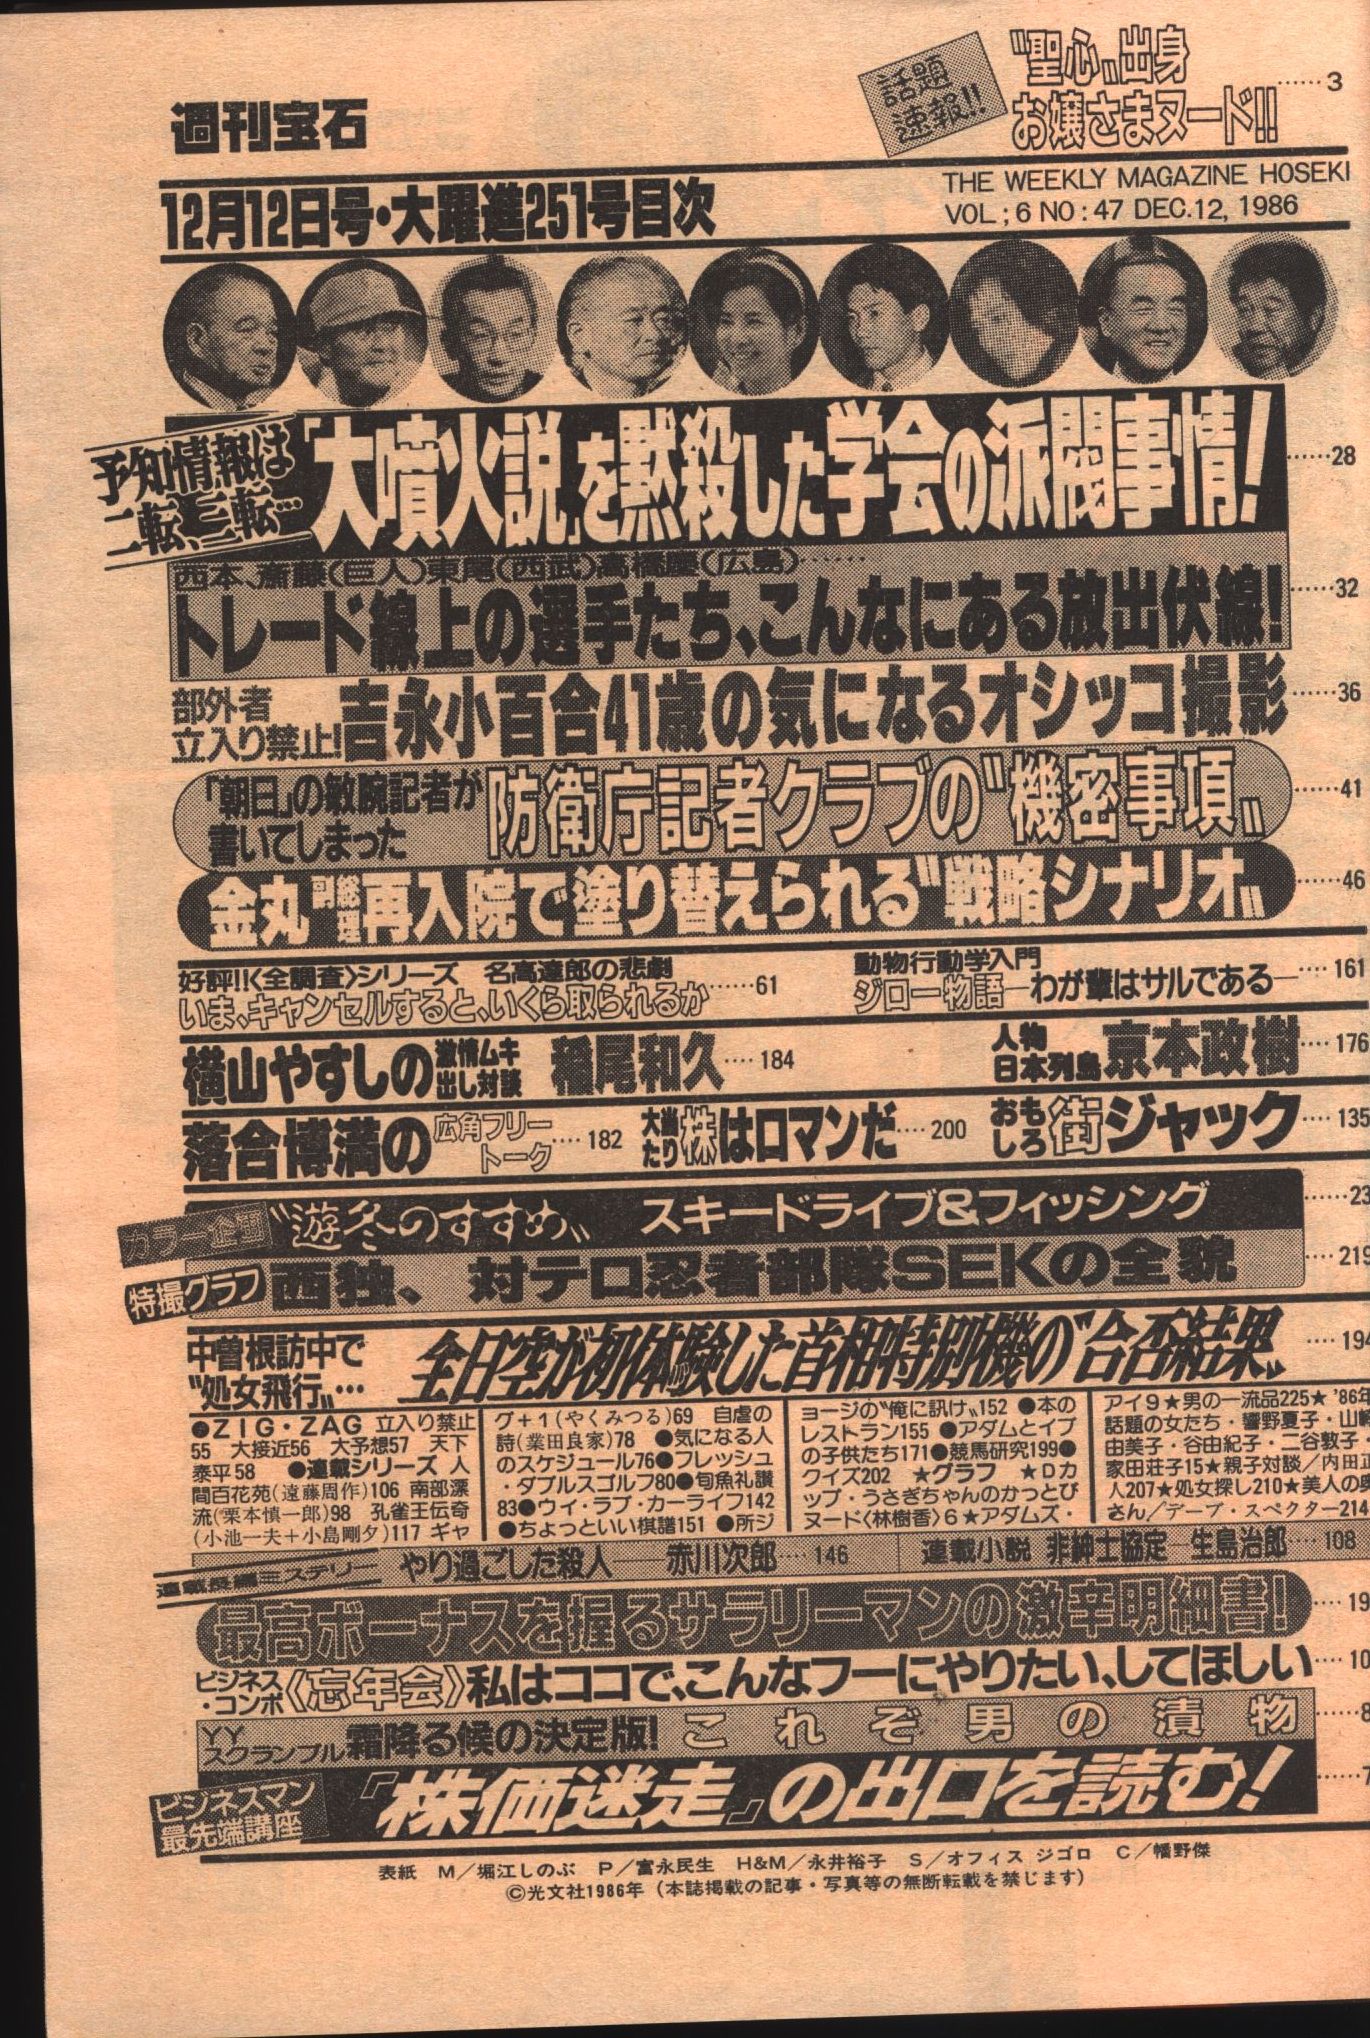 話題
速報!!
〝聖心〟出身
お嬢さまヌード!!
……3
週刊宝石
12月12日号・大躍進251号目次
THE WEEKLY MAGAZINE HOSEKI
VOL ; 6 NO : 47 DEC.12, 1986
予知情報は
二転、三転…
「大噴火説」を黙殺した学会の派閥事情! ……28
西本、斎藤(巨人)東尾(西武)高橋慶(広島)……
トレード線上の選手たち、こんなにある放出伏線! ……32
部外者
立入り禁止!
吉永小百合41歳の気になるオシッコ撮影 ……36
「朝日」の敏腕記者が
書いてしまった
防衛庁記者クラブの〝機密事項〟 ……41
金丸副総理再入院で塗り替えられる〝戦略シナリオ〟 ……46
好評!!〈全調査〉シリーズ 名高達郎の悲劇
いま、キャンセルすると、いくら取られるか ……61
動物行動学入門
ジロー物語―わが輩はサルである― …… 161
横山やすしの激情ムキ出し対談 稲尾和久 …… 184
人物
日本列島 京本政樹 …… 176
落合博満の広角フリートーク …… 182
大当たり株はロマンだ …… 200
おもしろ街ジャック …… 135
カラー企画 〝遊冬のすすめ〟 スキードライブ&フィッシング ……23
特撮グラフ 西独、対テロ忍者部隊SEKの全貌 …… 219
中曽根訪中で
〝処女飛行〟…
全日空が初体験した首相特別機の〝合否結果〟 …… 194
●ZIG・ZAG 立入り禁止
55 大接近56 大予想57 天下
泰平58 ●連載シリーズ 人
間百花苑(遠藤周作)106 南部漂
流(栗本慎一郎)98 孔雀王伝奇
(小池一夫+小島剛夕)117 ギャ
グ+1(やくみつる)69 自虐の
詩(業田良家)78 ●気になる人
のスケジュール76●フレッシュ
・ダブルスゴルフ80●旬魚礼讃
83●ウイ・ラブ・カーライフ142
●ちょっといい棋譜151 ●所ジ
ョージの〝俺に訊け〟152 ●本の
レストラン155 ●アダムとイブ
の子供たち171●競馬研究199●
クイズ202 ★グラフ ★Dカ
ップ・うさぎちゃんのかっとび
ヌード〈林樹香〉6★アダムズ・
アイ9★男の一流品225★'86年
話題の女たち・響野夏子・山崎
由美子・谷由紀子・二谷敦子・
家田荘子15★親子対談/内田正
人207★処女探し210★美人の奥
さん/デーブ・スペクター214
連載長編ミステリー やり過ごした殺人―― 赤川次郎 …… 146
連載小説 非紳士協定―生島治郎 …… 108
最高ボーナスを握るサラリーマンの激辛明細書! …… 19
ビジネス
・コンポ
《忘年会》私はココで、こんなフーにやりたい、してほしい …… 10
YY
スクランブル
霜降る候の決定版! これぞ男の漬物 …… 8
ビジネスマン
最先端講座
『株価迷走』の出口を読む! …… 7
表紙 M/堀江しのぶ P/富永民生 H&M/永井裕子 S/オフィス ジゴロ C/幡野傑
©光文社1986年(本誌掲載の記事・写真等の無断転載を禁じます)